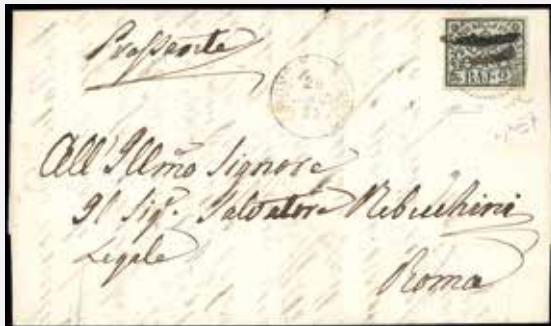 Pressante
BAJ
All' Illmo Signore
Il Sigr. Salvatore Rebecchini
Legale
Roma